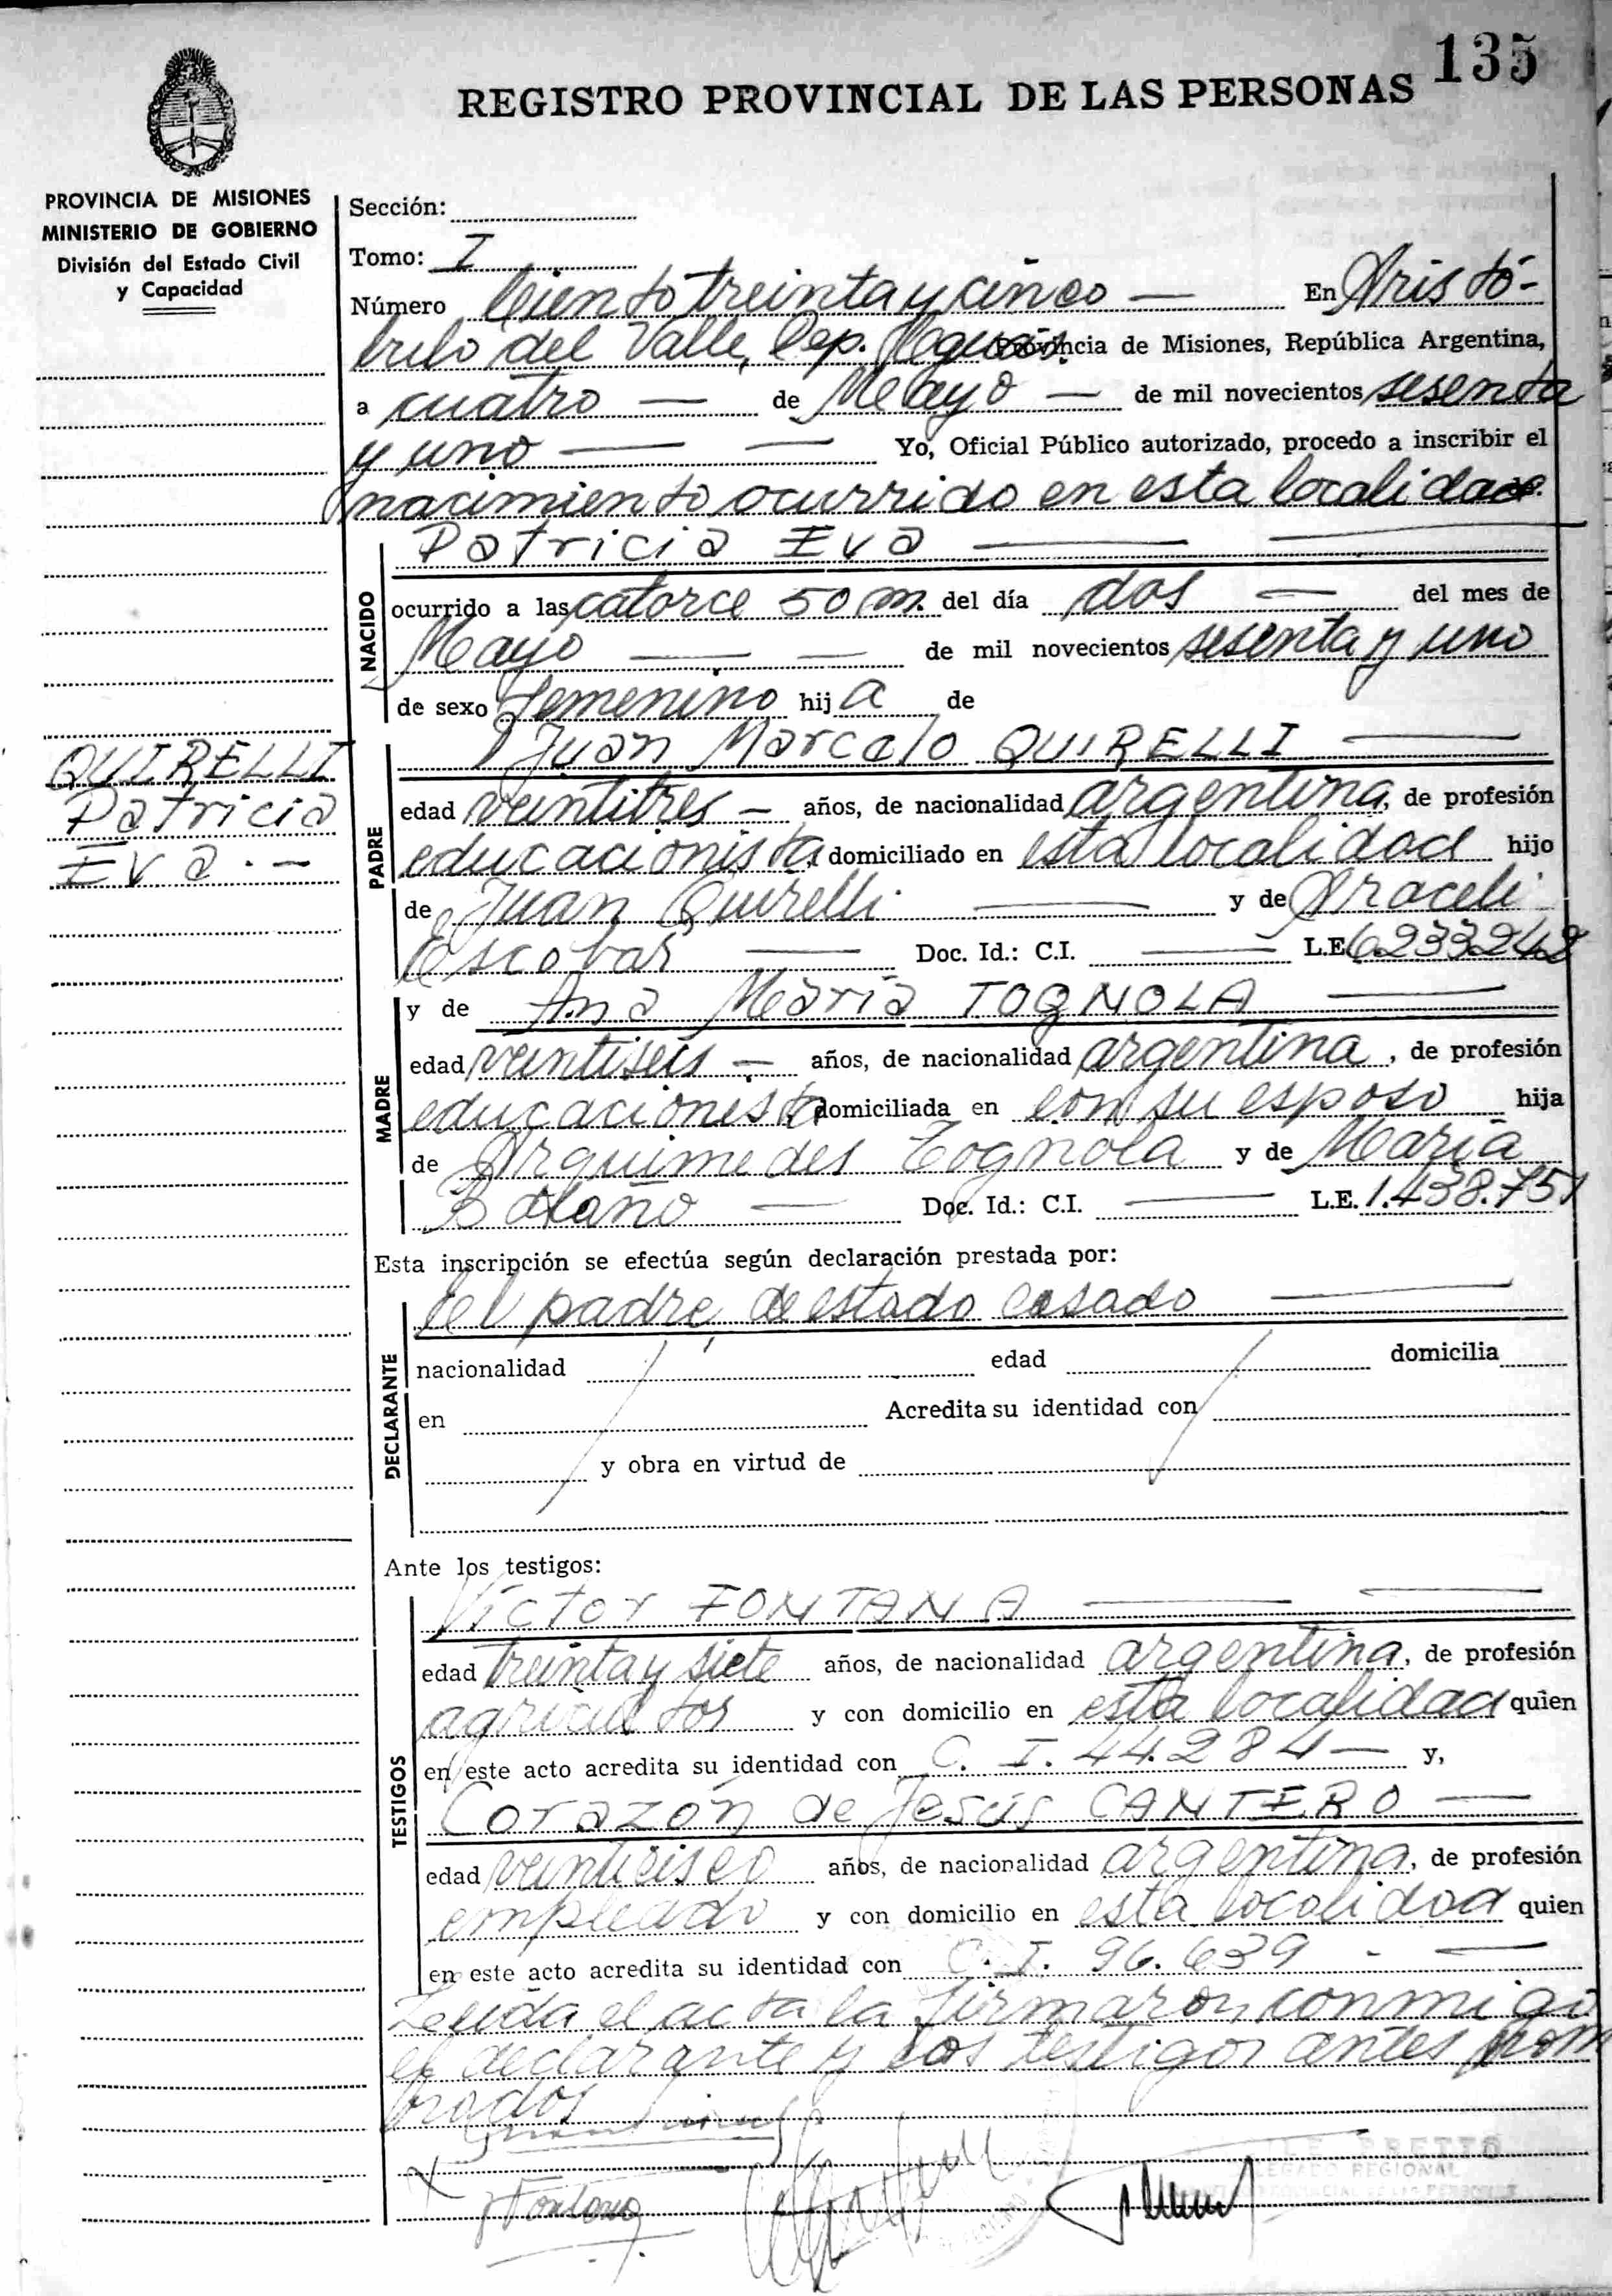 135
REGISTRO PROVINCIAL DE LAS PERSONAS
PROVINCIA DE MISIONES
MINISTERIO DE GOBIERNO
División del Estado Civil
y Capacidad
QUIRELLI
Patricia
Eva.-
Sección:
Tomo: I
Número Ciento treinta y cinco — En Aristó-
bulo del Valle, Dep. Provincia de Misiones, República Argentina,
a cuatro — de Mayo — de mil novecientos sesenta
y uno — — Yo, Oficial Público autorizado, procedo a inscribir el
nacimiento ocurrido en esta localidad.
Patricia Eva — —
NACIDO
ocurrido a las catorce 50 m. del día dos — del mes de
Mayo — — de mil novecientos sesenta y uno
de sexo femenino hija de
Juan Marcelo QUIRELLI —
PADRE
edad veintitres — años, de nacionalidad argentina, de profesión
educacionista domiciliado en esta localidad hijo
de Juan Quirelli — y de Araceli
Escobar — Doc. Id.: C.I. — L.E. 6233248
y de Ana María TOGNOLA —
MADRE
edad veintiseis — años, de nacionalidad argentina, de profesión
educacionista domiciliada en con su esposo hija
de Arquimedes Tognola y de María
Bolaño — Doc. Id.: C.I. — L.E. 1.438.751
Esta inscripción se efectúa según declaración prestada por:
el padre, de estado casado —
DECLARANTE
nacionalidad edad domicilia
en Acredita su identidad con
y obra en virtud de
Ante los testigos:
Víctor FONTANA — —
TESTIGOS
edad treinta y siete años, de nacionalidad argentina, de profesión
agricultor y con domicilio en esta localidad quien
en este acto acredita su identidad con C. I. 44.284 — y,
Corazón de Jesús CANTERO —
edad años, de nacionalidad argentina, de profesión
empleado y con domicilio en esta localidad quien
en este acto acredita su identidad con C. I. 96.639 . —
Leída el acta la firmaron conmigo
el declarante y los testigos antes nom
brados
Fontana
BRETTO
LEGADO REGIONAL